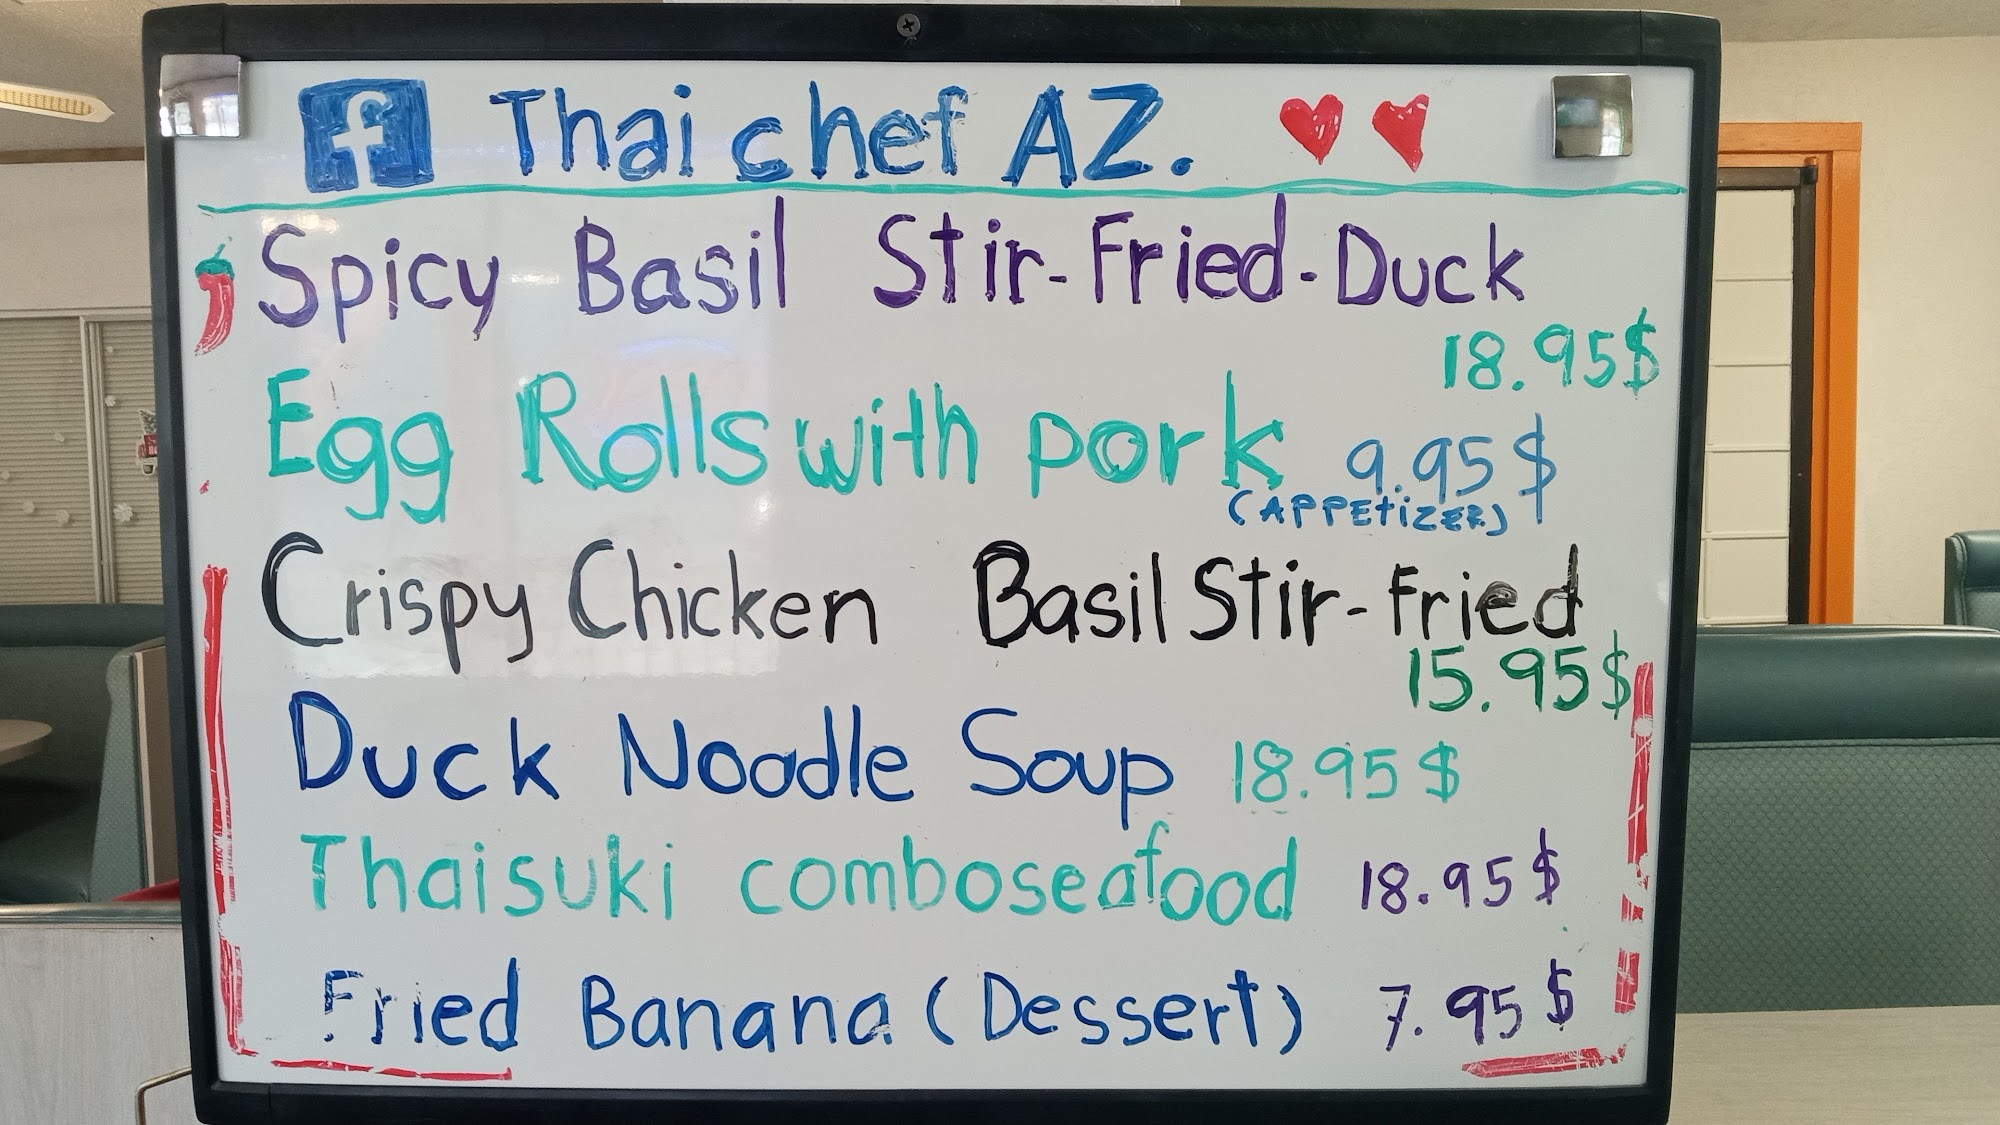 f Thai chef AZ.
Spicy Basil Stir-Fried-Duck
18.95$
Egg Rolls with pork 9.95$
(APPEtiZER)
Crispy Chicken Basil Stir-Fried
15.95$
Duck Noodle Soup 18.95$
Thaisuki comboseafood 18.95$
Fried Banana (Dessert) 7.95$